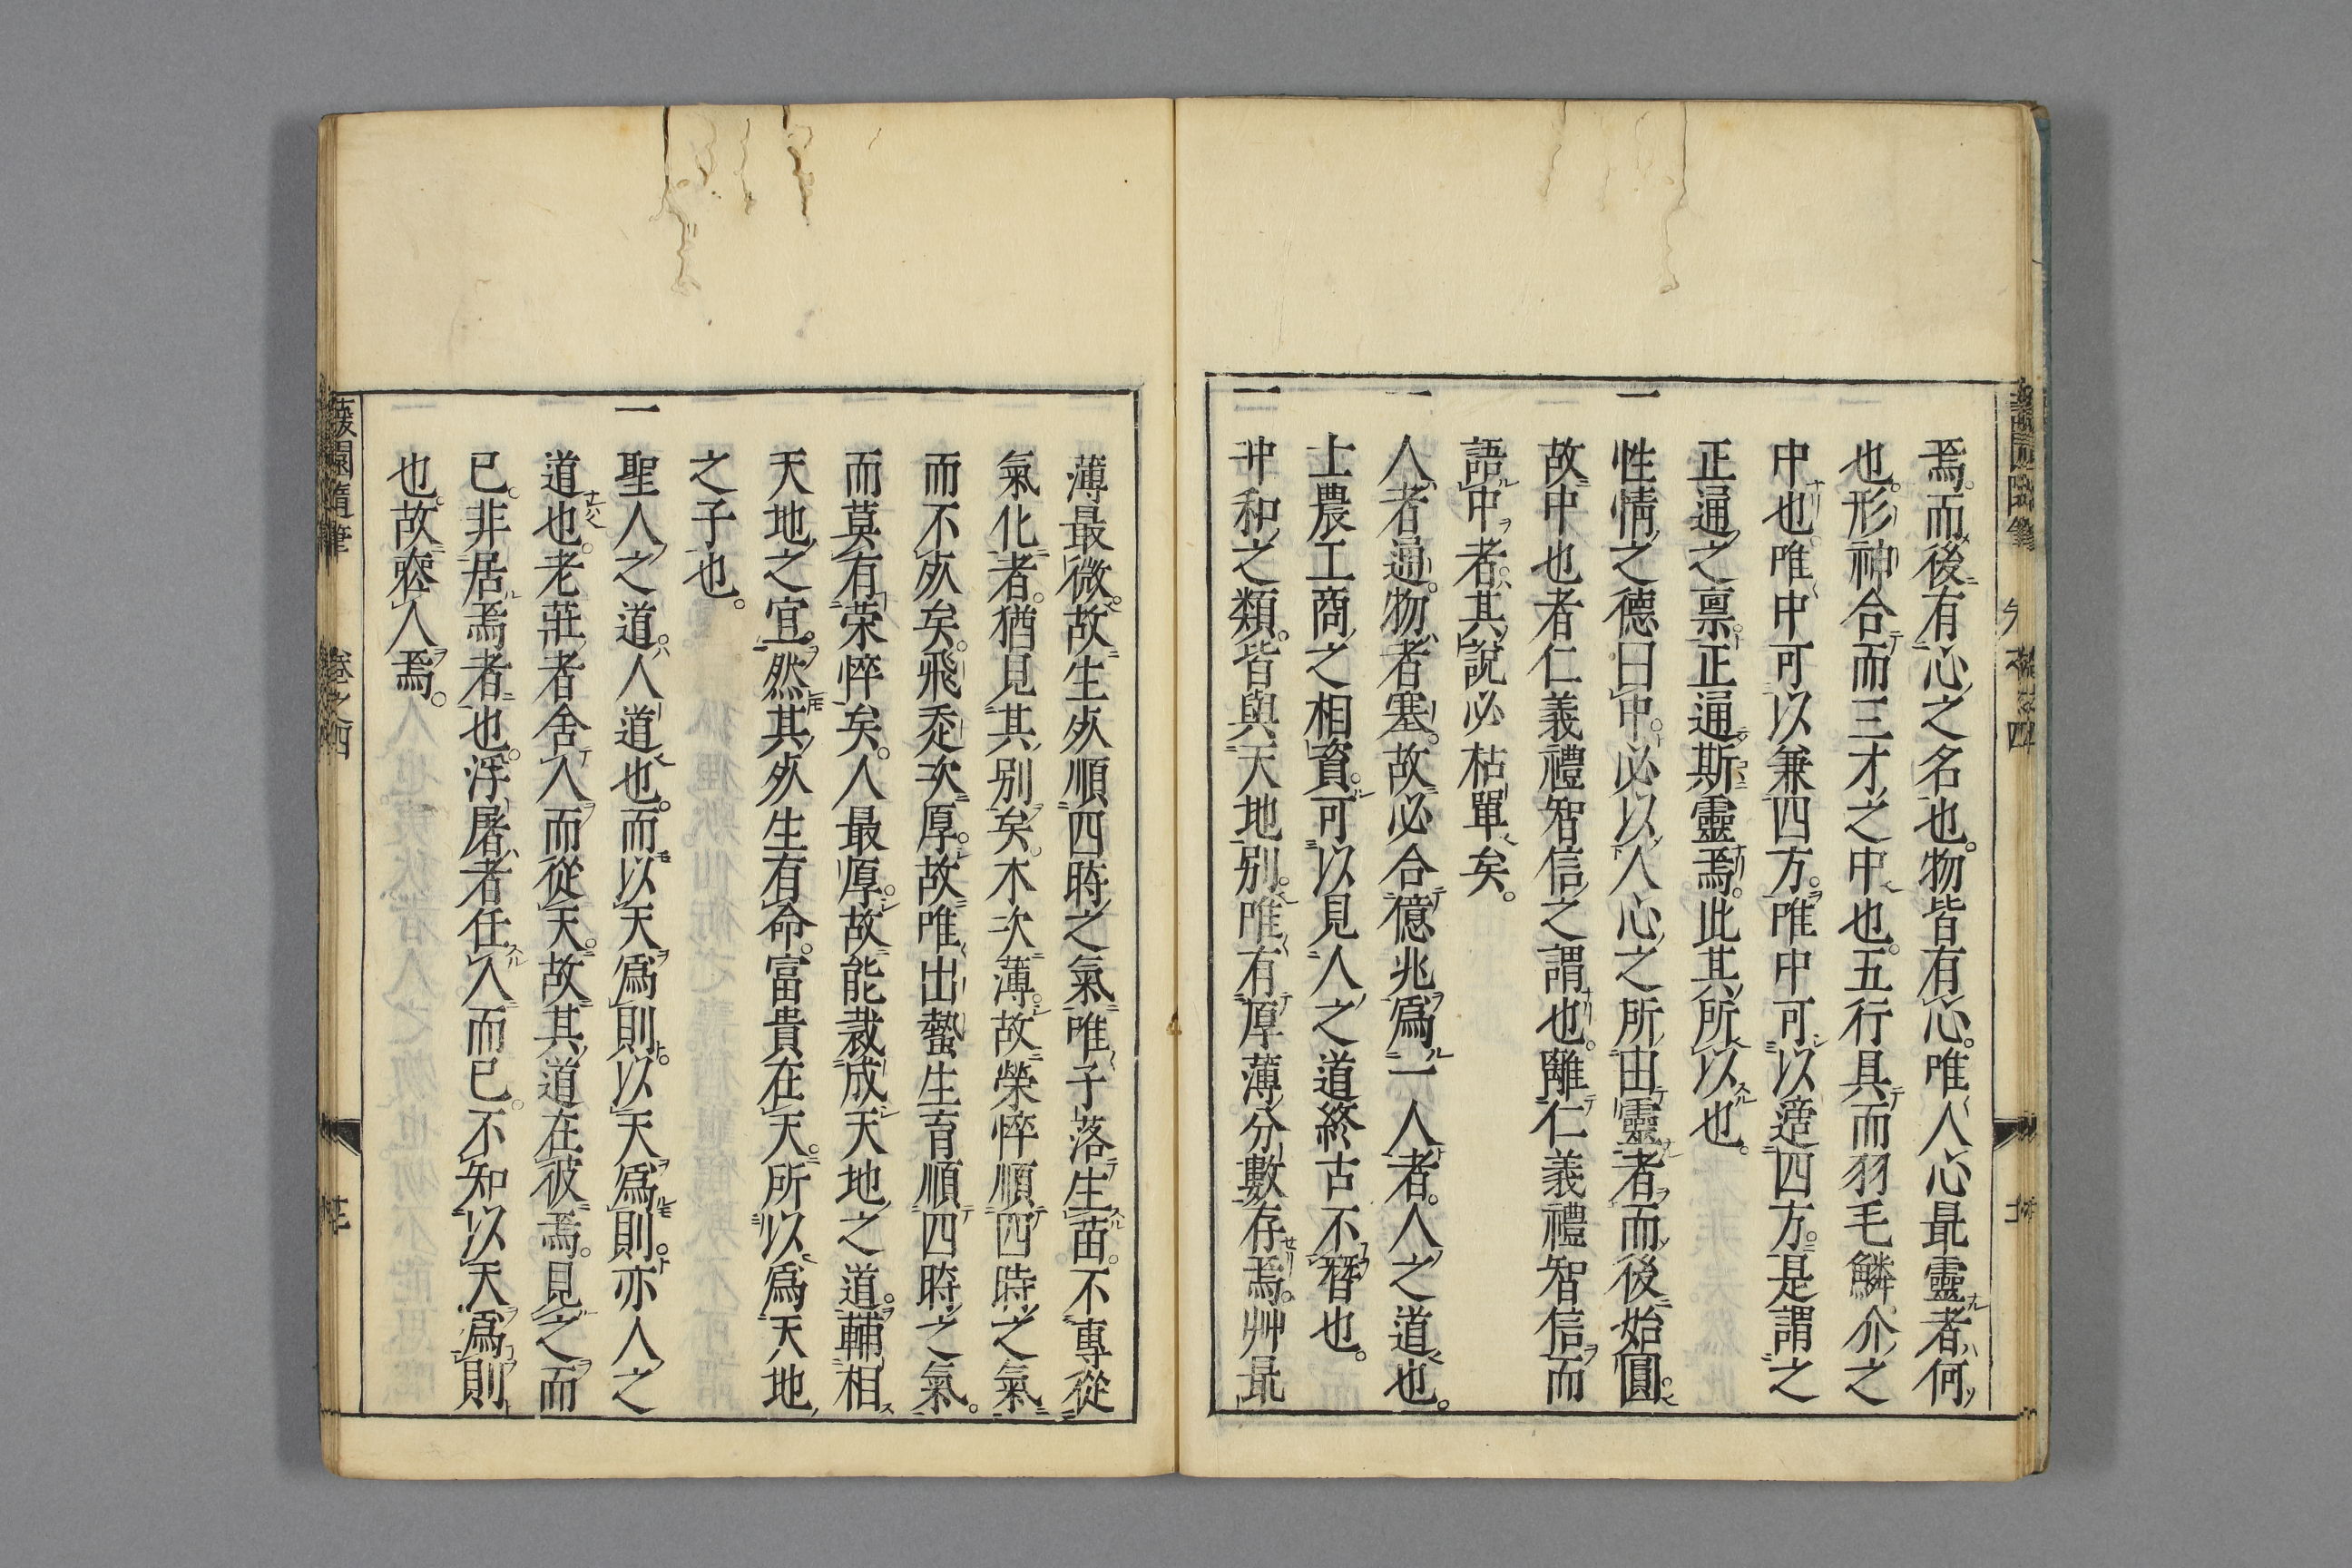 焉。而後有心之名也。物皆有心。唯人心最靈者何
也。形神合而三才之中也。五行具而羽毛鱗介之
中也。唯中可以兼四方。唯中可以適四方。是謂之
正通之禀。正通斯靈焉。此其所以也。
一性情之德曰中。必以人心之所由靈者而後始圓。
故中也者仁義禮智信之謂也。離仁義禮智信而
語中者。其說必枯單矣。
一人者通。物者塞。故必合億兆爲一人者。人之道也。
士農工商之相資。可以見人之道終古不朁也。
一中和之類。皆與天地別。唯有厚薄分數存焉。艸最
薄最微。故生死順四時之氣唯子落生苗。不專從
氣化者。猶見其別矣。木次薄。故榮悴順四時之氣
而不死矣。飛走次厚。故唯出蟄生育順四時之氣。
而莫有荣悴矣。人最厚。故能裁成天地之道。輔相
天地之宜。然其死生有命。富貴在天。所以爲天地
之子也。
一聖人之道。人道也。而以天爲則。以天爲則。亦人之
道也。老莊者舍人而從天。故其道在彼焉。見之而
已。非居焉者也。浮屠者任人而已。不知以天爲則
也。故壑人焉。
蘐園隨筆 卷之四